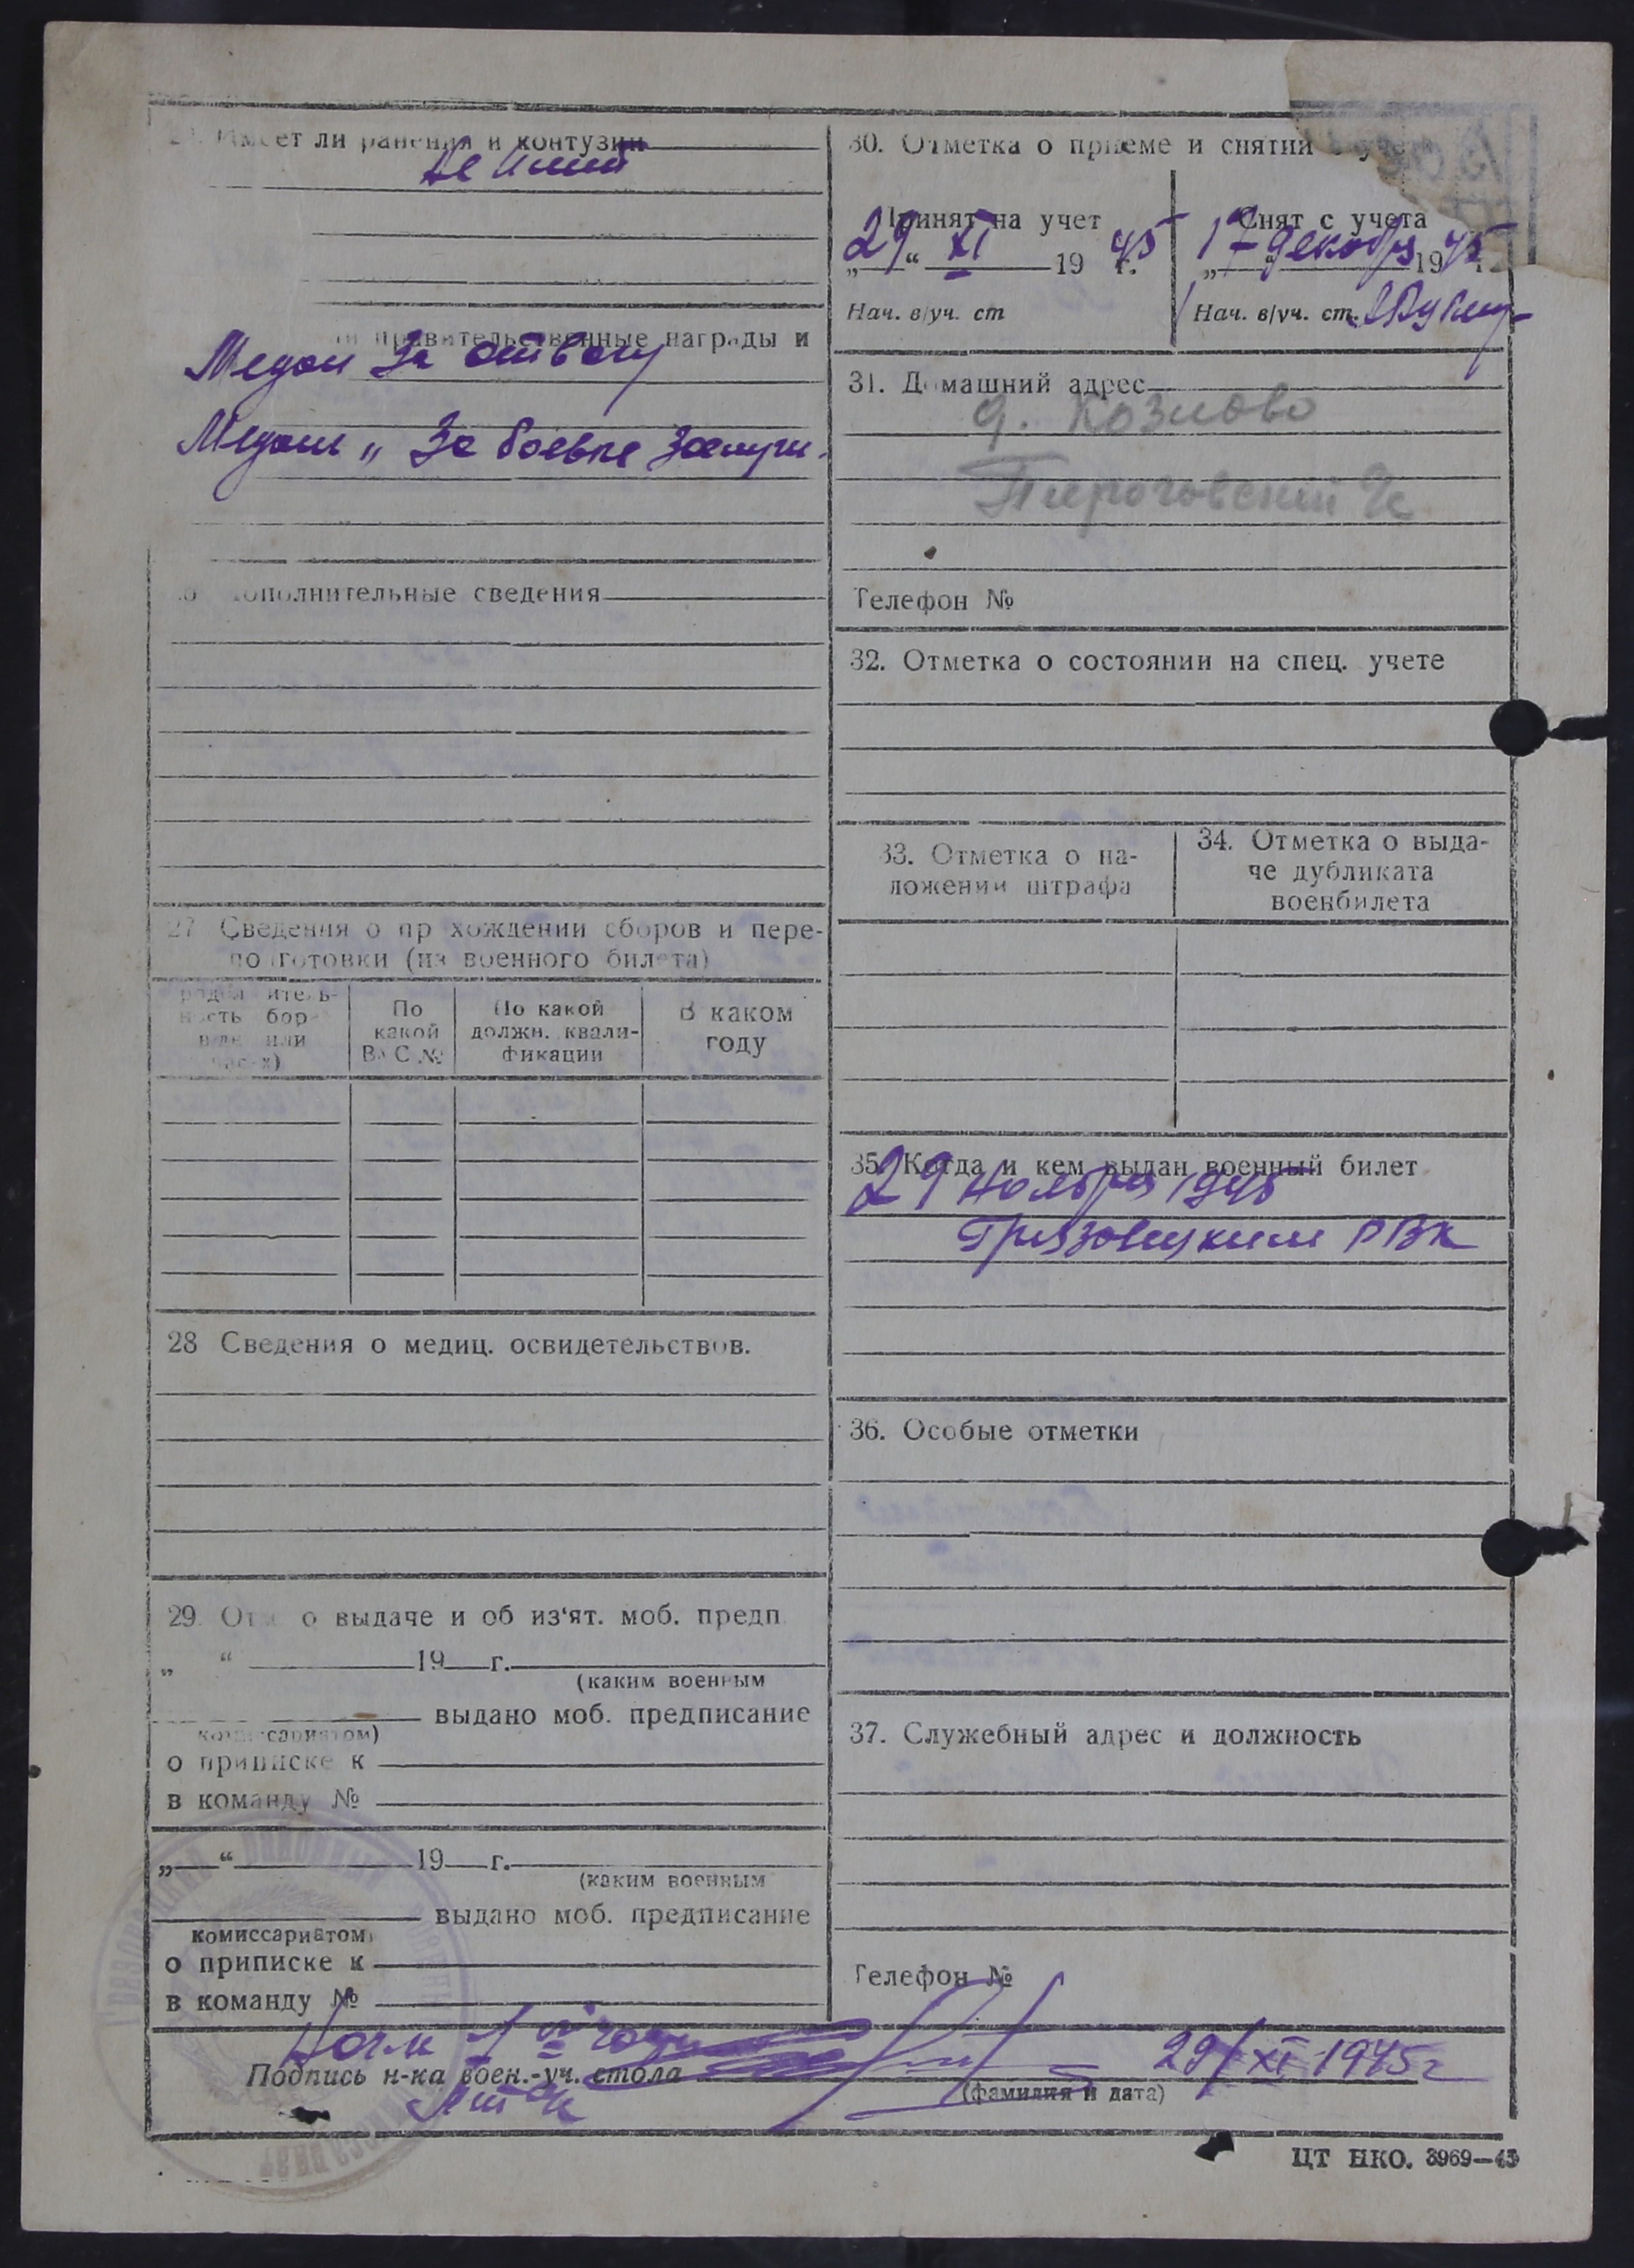 Имеет ли ранения и контузии
Не имеет
правительственные награды и
Медаль За отвагу
Медаль „ За боевые заслуги.
дополнительные сведения
27 Сведения о прохождении сборов и пере-
подготовки (из военного билета)
По
какой
ВУС №
По какой
должн. квали-
фикации
В каком
году
28 Сведения о медиц. освидетельствов.
29. Отм. о выдаче и об из‘ят. моб. предп.
„ “ 19 г.
(каким военным
выдано моб. предписание
комиссариатом)
о приписке к
в команду №
„ “ 19 г.
(каким военным
выдано моб. предписание
комиссариатом)
о приписке к
в команду №
30. Отметка о приеме и снятии с учета
Принят на учет
„29“ XI 1945 г.
Нач. в/уч. ст
Снят с учета
„17“ декабря 1945 г.
Нач. в/уч. ст.
31. Домашний адрес
д. Козлово
Пироговский
Телефон №
32. Отметка о состоянии на спец. учете
33. Отметка о на-
ложении штрафа
34. Отметка о выда-
че дубликата
военбилета
35. Когда и кем выдан военный билет
29 ноября 1945
Грязовецким РВК
36. Особые отметки
37. Служебный адрес и должность
Телефон №
Подпись н-ка воен.-уч. стола
29/XI 1945 г
(фамилия и дата)
ЦТ НКО. 3969—43